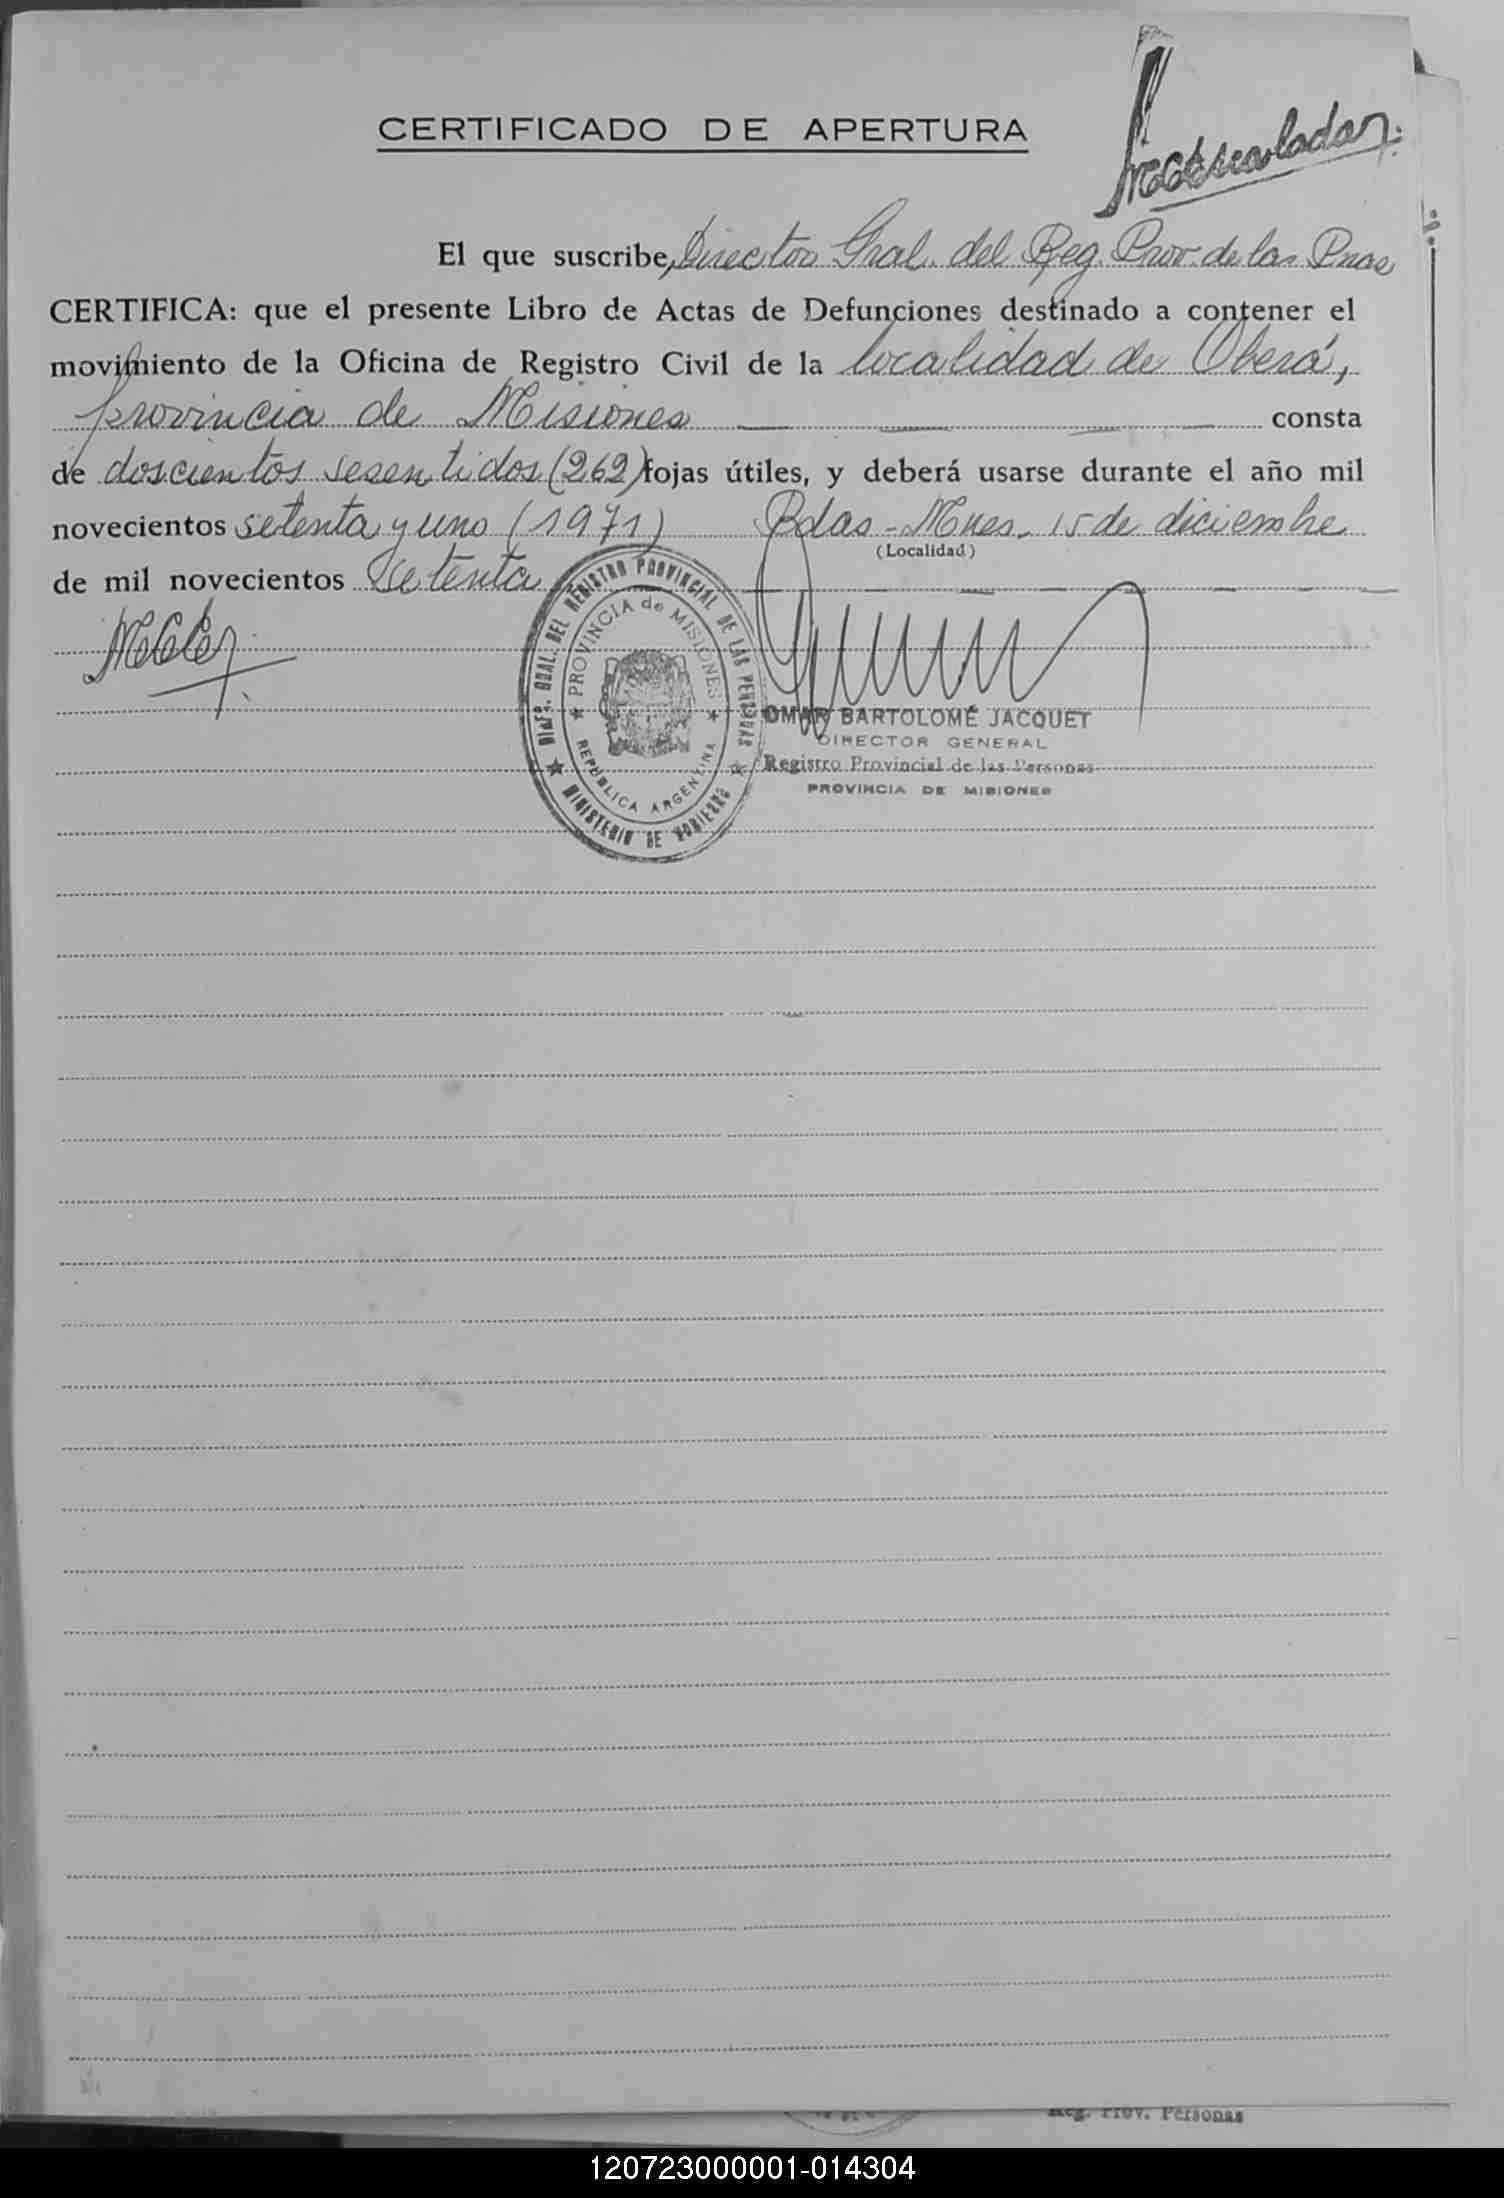 CERTIFICADO DE APERTURA
El que suscribe, Director Gral. del Reg. Prov. de las Pnas
CERTIFICA: que el presente Libro de Actas de Defunciones destinado a contener el
movimiento de la Oficina de Registro Civil de la localidad de Oberá,
provincia de Misiones consta
de doscientos sesentidos (262) fojas útiles, y deberá usarse durante el año mil
novecientos setenta y uno (1971) Pdas - Mnes. 15 de diciembre
(Localidad)
de mil novecientos Setenta
DIREC. GRAL. DEL REGISTRO PROVINCIAL DE LAS PERSONAS
PROVINCIA de MISIONES
REPUBLICA ARGENTINA
MINISTERIO DE GOBIERNO
OMAR BARTOLOMÉ JACQUET
DIRECTOR GENERAL
Registro Provincial de las Personas
PROVINCIA DE MISIONES
Reg. Prov. Personas
120723000001-014304